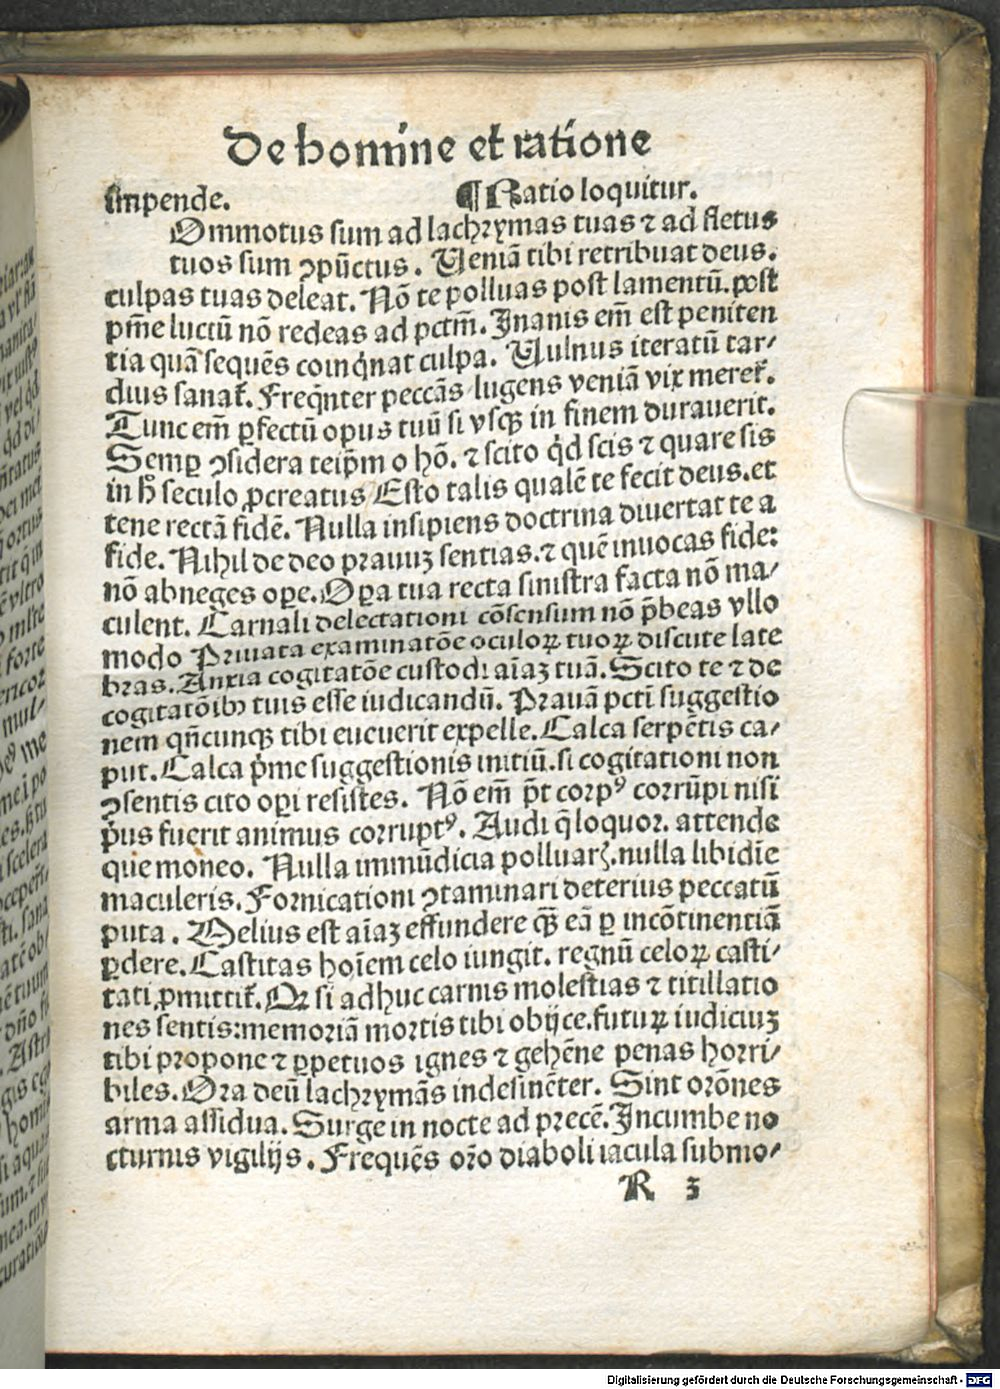 De homine et ratione
impende. ¶ Ratio loquitur.
Ommotus sum ad lachrymas tuas ⁊ ad fletus
tuos sum ꝯpūctus. Ueniā tibi retribuat deus.
culpas tuas deleat. Nō te polluas post lamentū. post
pm̄e luctū nō redeas ad pctm̄. Inanis em̄ est peniten
tia quā sequēs coinq̇nat culpa. Uulnus iteratū tar/
dius sanat᷑. Freq̄nter peccās lugens veniā vix meret᷑.
Tunc em̄ ꝑfectū opus tuū si vsqꝫ in finem durauerit.
Semꝑ ꝯsidera teip̄m o hō. ⁊ scito qd̓ scis ⁊ quare sis
in h̄ seculo ꝓcreatus Esto talis qualē te fecit deus. et
tene rectā fidē. Nulla insipiens doctrina diuertat te a
fide. Nihil de deo prauuꝫ sentias. ⁊ quē inuocas fide:
nō abneges oꝑe. Oꝑa tua recta sinistra facta nō ma/
culent. Carnali delectationi cōsensum nō p̄beas vllo
modo Priuata examinatōe oculoꝝ tuoꝝ discute late
bras. Anxia cogitatōe custodi aīaꝫ tuā. Scito te ⁊ de
cogitatōibꝫ tuis esse iudicandū. Prauā pcti suggestio
nem qn̄cunqꝫ tibi euenerit expelle. Calca serpētis ca/
put. Calca p̓me suggestionis initiū. si cogitationi non
ꝯsentis cito oꝑi resistes. Nō em̄ p̄t corpꝰ corrūpi nisi
p̓us fuerit animus corruptꝰ. Audi q̄ loquor. attende
que moneo. Nulla immūdicia polluarꝭ. nulla libidīe
maculeris. Fornicationi ꝯtaminari deterius peccatū
puta. Melius est aīaꝫ effundere qꝫ eā ꝑ incōtinentiā
ꝑdere. Castitas hoīem celo iungit. regnū celoꝝ casti/
tati ꝓmittit᷑. Qꝛ si adhuc carnis molestias ⁊ titillatio
nes sentis: memoriā mortis tibi obijce. futuꝝ iudiciuꝫ
tibi propone ⁊ ꝑpetuos ignes ⁊ gehēne penas horri/
biles. Ora deū lachrymās indesinēter. Sint orōnes
arma assidua. Surge in nocte ad precē. Incumbe no
cturnis vigilijs. Frequēs orō diaboli iacula submo/
R 3
Digitalisierung gefördert durch die Deutsche Forschungsgemeinschaft - DFG